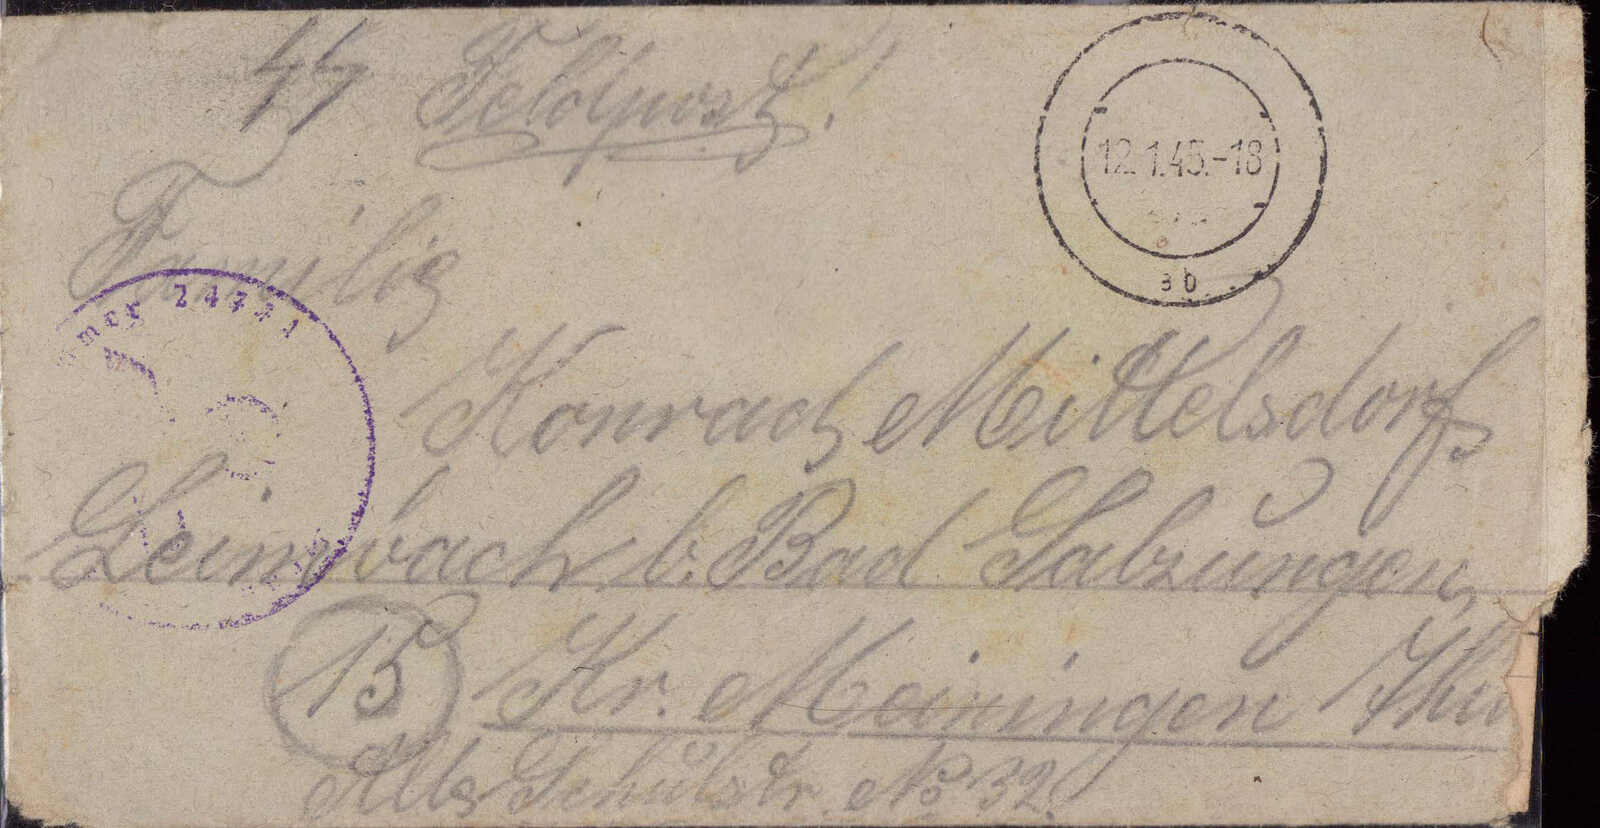 SS Feldpost!
12.1.45.-18
ab
Familie
24731
Konrad Mittelsdorf
Leimbach b. Bad Salzungen,
15 Kr. Meiningen Thü
Alte Schulstr. No 32.